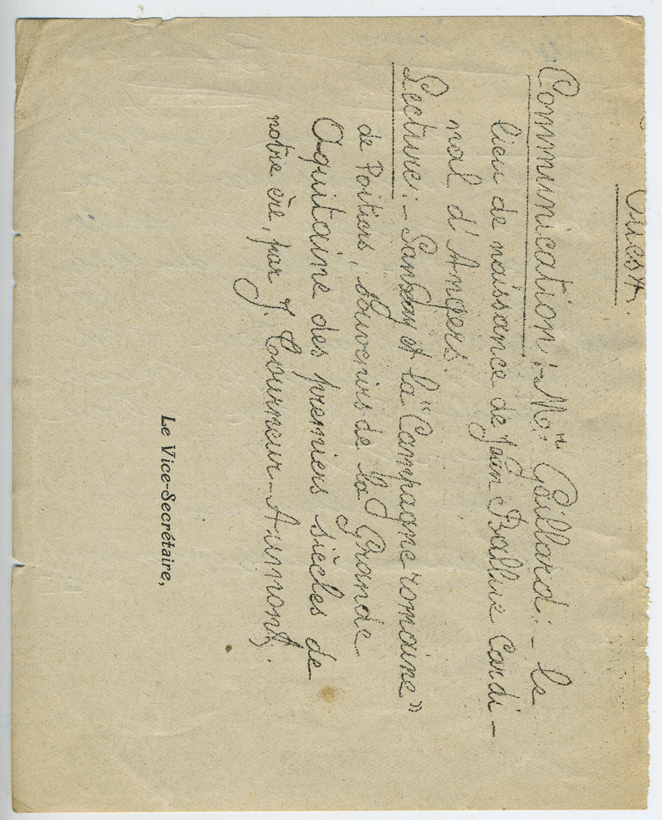 Ouest.
Communication :- Mgr Gaillard :- le
lieu de naissance de Jean Ballue Cardi-
nal d'Angers.
Lecture :- Sanxay et la "Campagne romaine"
de Poitiers, souvenirs de la Grande
Aquitaine des premiers siècles de
notre ère, par J. Tourneur-Aumont.
Le Vice-Secrétaire,